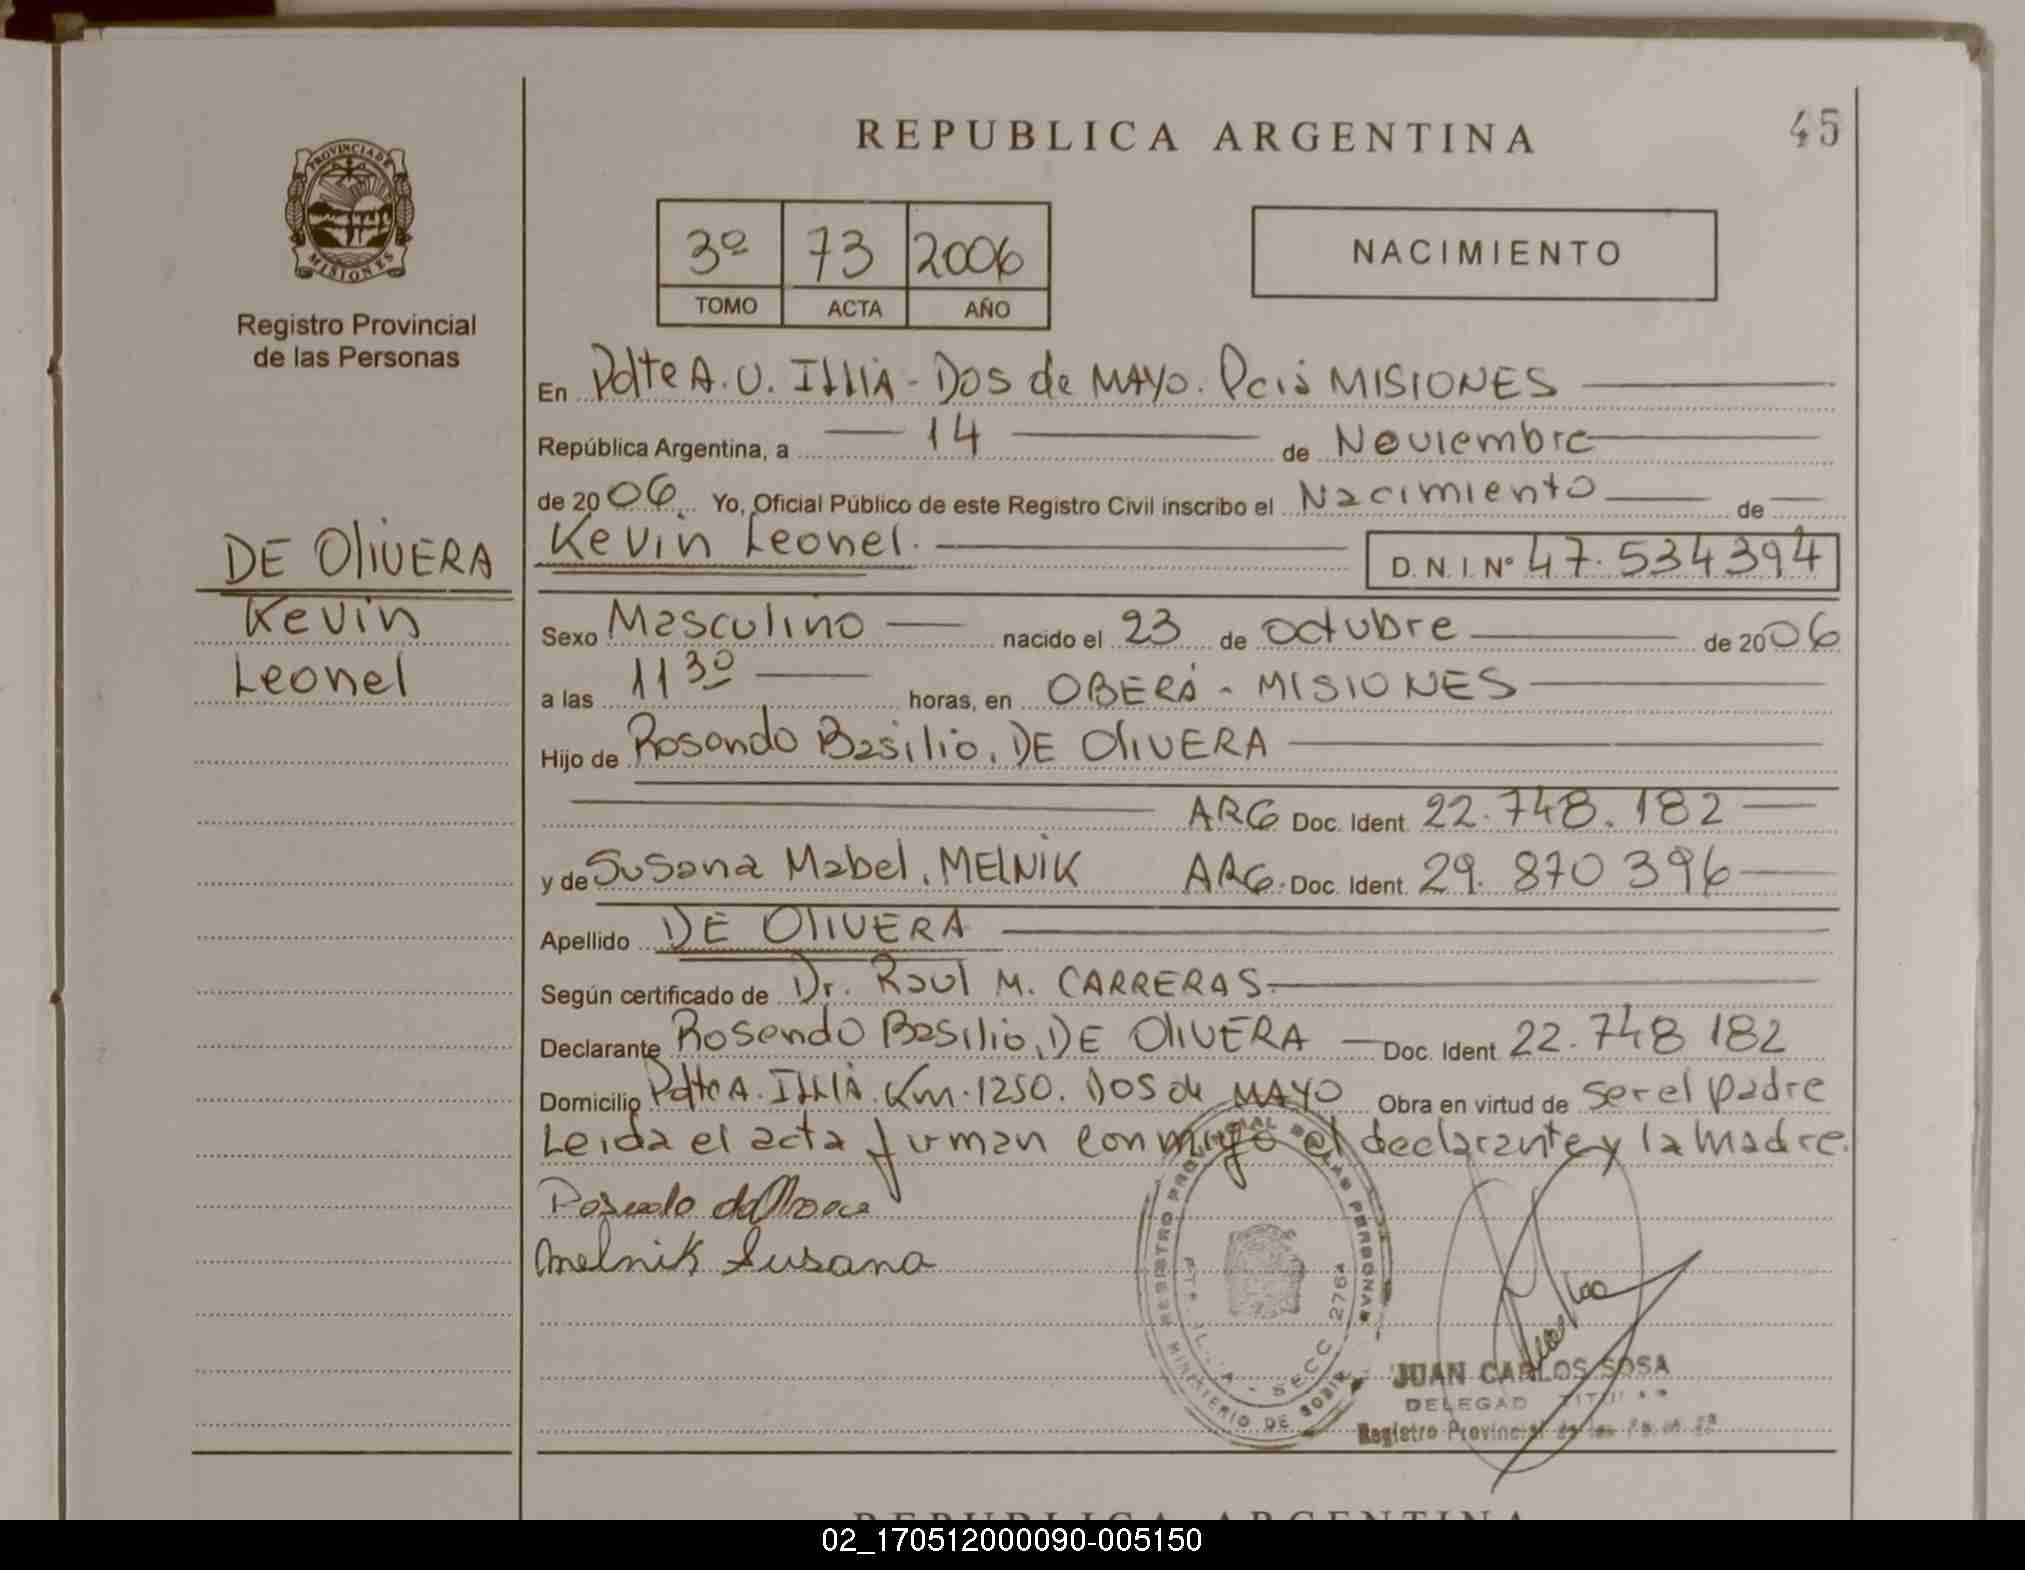 REPUBLICA ARGENTINA
45
PROVINCIA DE
MISIONES
Registro Provincial
de las Personas
3º 73 2006
TOMO ACTA AÑO
NACIMIENTO
En Pdte A. U. ILLIA - Dos de MAYO. Pcia MISIONES
República Argentina, a 14 de Noviembre
de 2006 Yo, Oficial Público de este Registro Civil inscribo el Nacimiento de
DE OLIVERA
Kevin
Leonel
Kevin Leonel. D. N. I. Nº 47.534394
Sexo Masculino nacido el 23 de octubre de 2006
a las 11 30 horas, en OBERÁ - MISIONES
Hijo de Rosendo Basilio, DE OLIVERA
ARG Doc. Ident. 22.748.182
y de Susana Mabel, MELNIK ARG. Doc. Ident. 29. 870 396
Apellido DE OLIVERA
Según certificado de Dr. Raul M. CARRERAS.
Declarante Rosendo Basilio, DE OLIVERA Doc. Ident. 22.748 182
Domicilio Pdte A. ILLIA. Km. 1250. Dos de MAYO Obra en virtud de ser el padre
Leida el acta firman conmigo el declarante y la madre.
Melnik Susana
REGISTRO PROVINCIAL DE LAS PERSONAS
SECC 2764
MINISTERIO DE GOBIE
JUAN CARLOS SOSA
DELEGAD TITU
Registro Provincial de las
REPUBLICA ARGENTINA
02_170512000090-005150